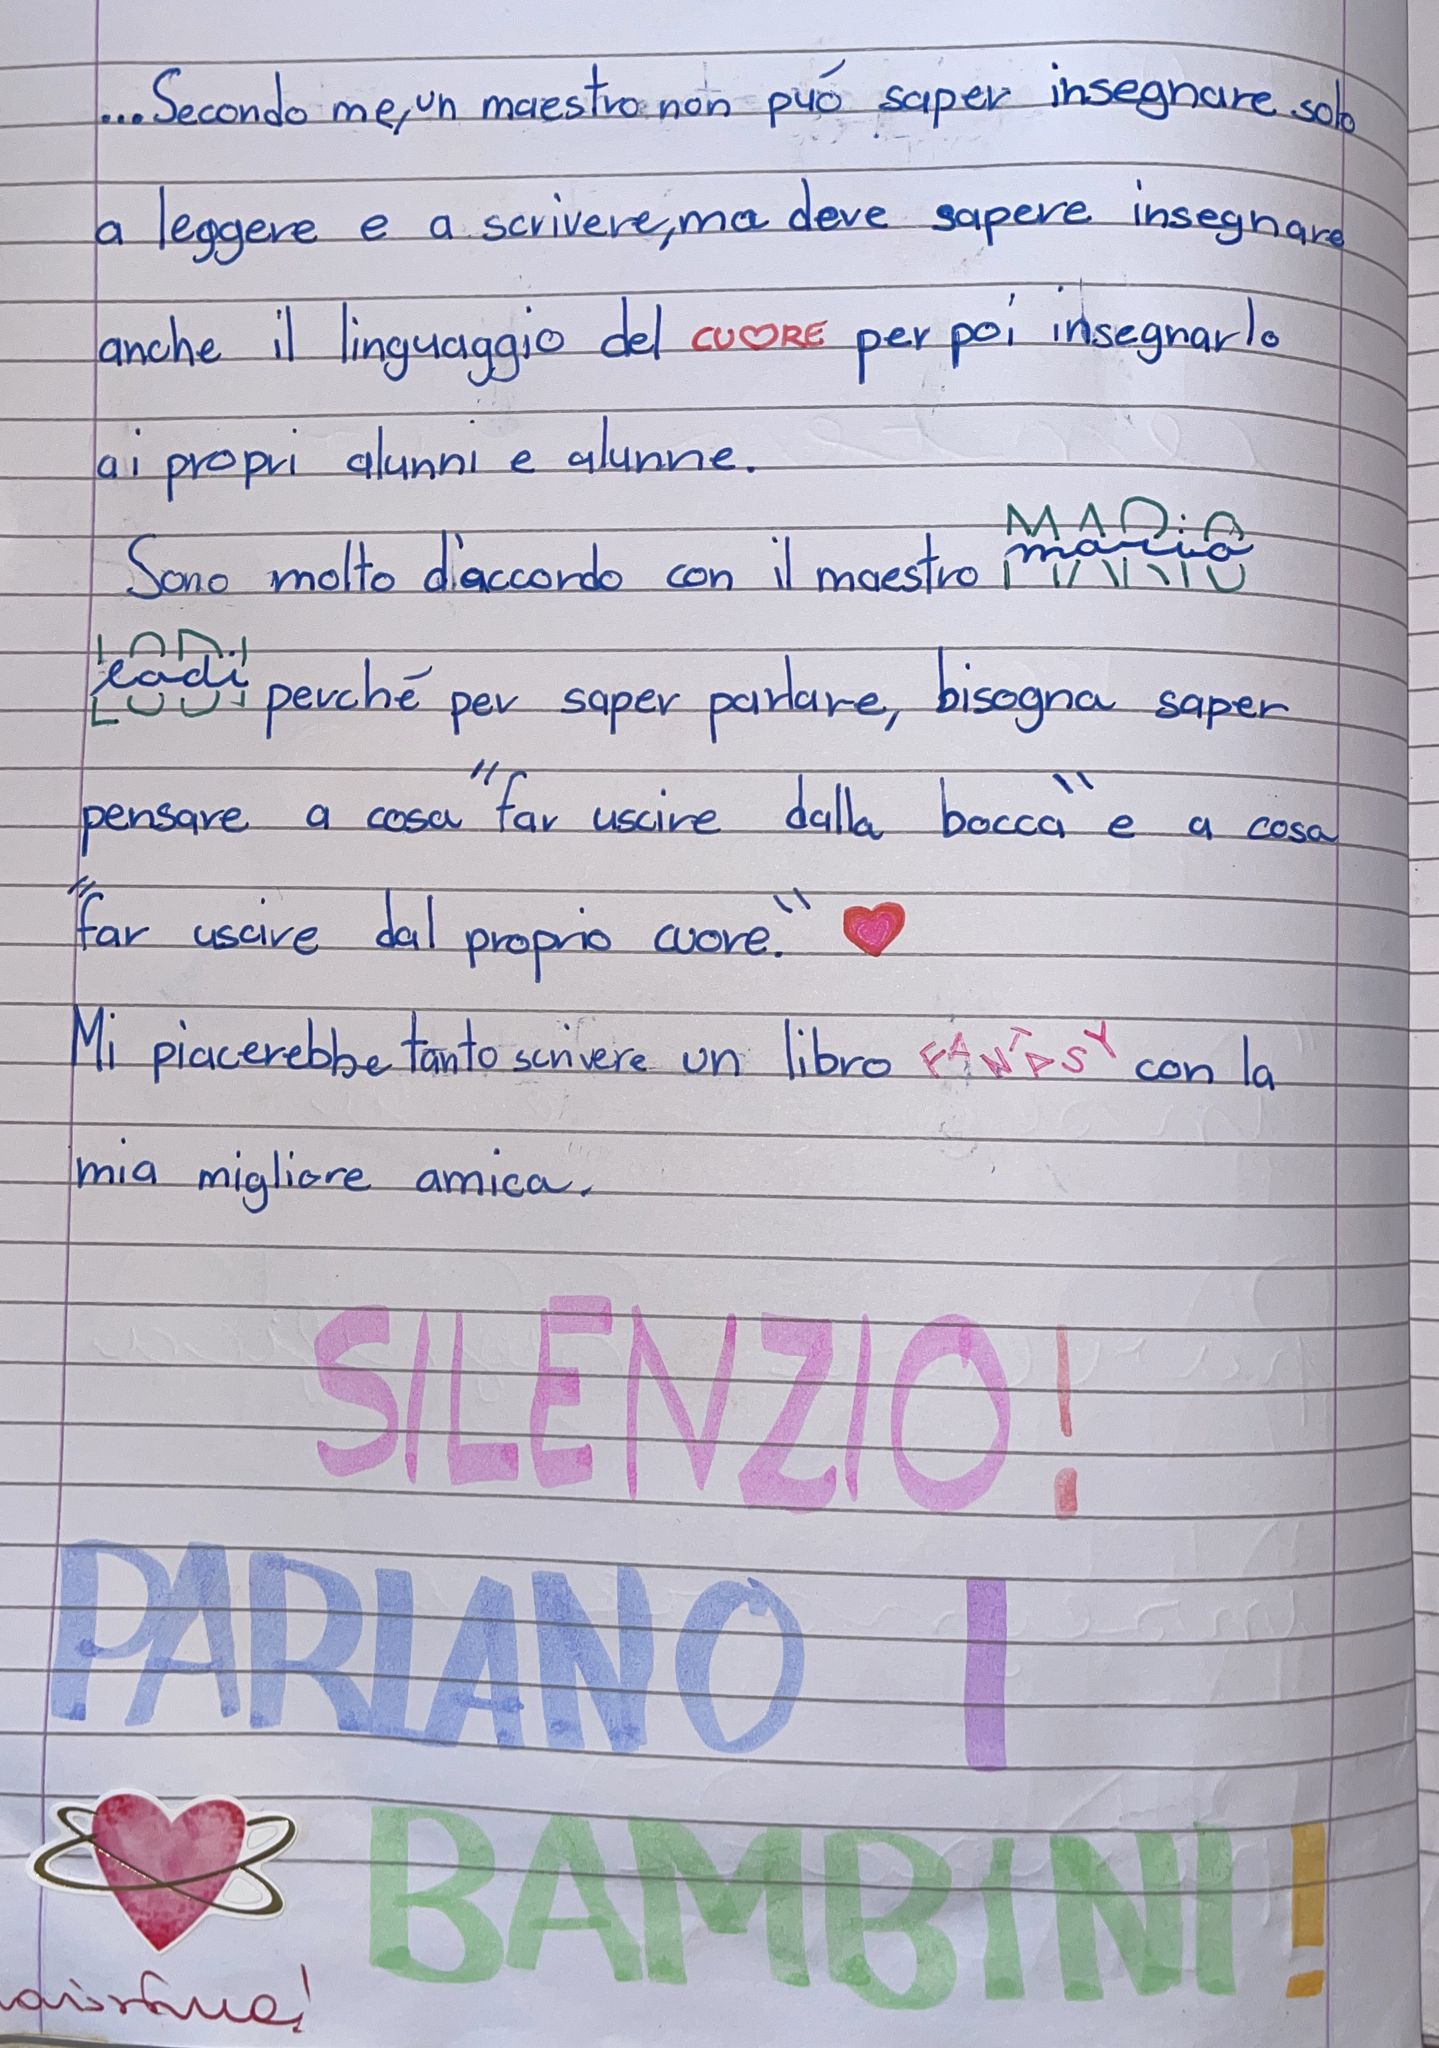 ...Secondo me, un maestro non puó saper insegnare solo
a leggere e a scrivere, ma deve sapere insegnare
anche il linguaggio del CUORE per poi insegnarlo
ai propri alunni e alunne.
Sono molto d'accordo con il maestro mario
lodi perché per saper parlare, bisogna saper
pensare a cosa "far uscire dalla bocca" e a cosa
"far uscire dal proprio cuore." 
Mi piacerebbe tanto scrivere un libro FANTASY con la
mia migliore amica.
SILENZIO!
PARLANO I
BAMBINI!